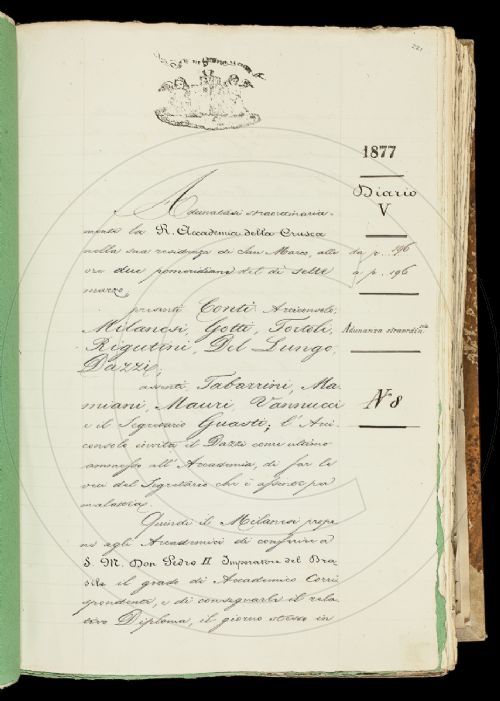 1877
Diario
V
da p. 196
a p. 196
Adunanza straordin.ria
N 8
Adunatasi straordinaria-
mente la R. Accademia della Crusca
nella sua residenza di San Marco, alle
ore due pomeridiane del dì sette
marzo,
presenti Conti Arciconsolo,
Milanesi, Gotti, Tortoli,
Rigutini, Del Lungo,
Dazzi;
assenti Tabarrini, Ma-
miani, Mauri, Vannucci
e il Segretario Guasti; l'Arci-
consolo invita il Dazzi come ultimo
ammesso all'Accademia, di far le
veci del Segretario che è assente per
malattia.
Quindi il Milanesi propo-
ne agli Accademici di conferire a
S. M. Don Pedro II Imperatore del Bra-
sile il grado di Accademico Corri-
spondente, e di consegnarli il rela-
tivo Diploma, il giorno stesso in